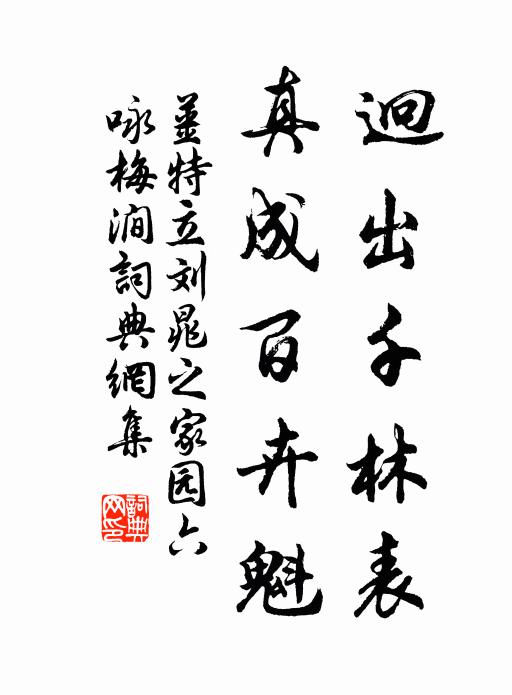 迥出千林表
真成百卉魁
姜特立刘晁之家园六
咏梅涧詞典網集
詞典
网印